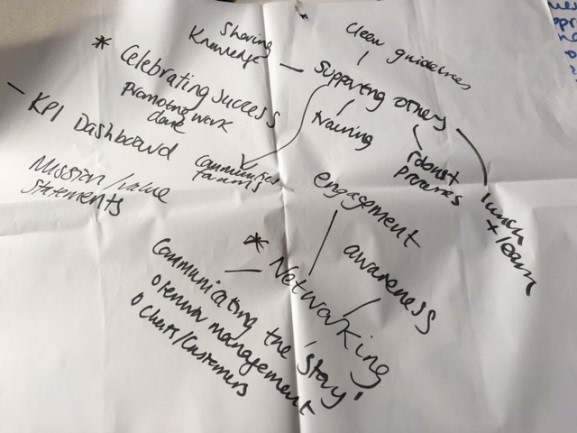 Sharing
Knowledge
clear guidelines
* Celebrating success
promoting work
done
Supporting others
training
robust
processes
lunch
+ learn
- KPI Dashboard
Mission/value
statements
Communities
forums
engagement
awareness
* Networking
Communicating the 'story'
o management
o Clients/Customers